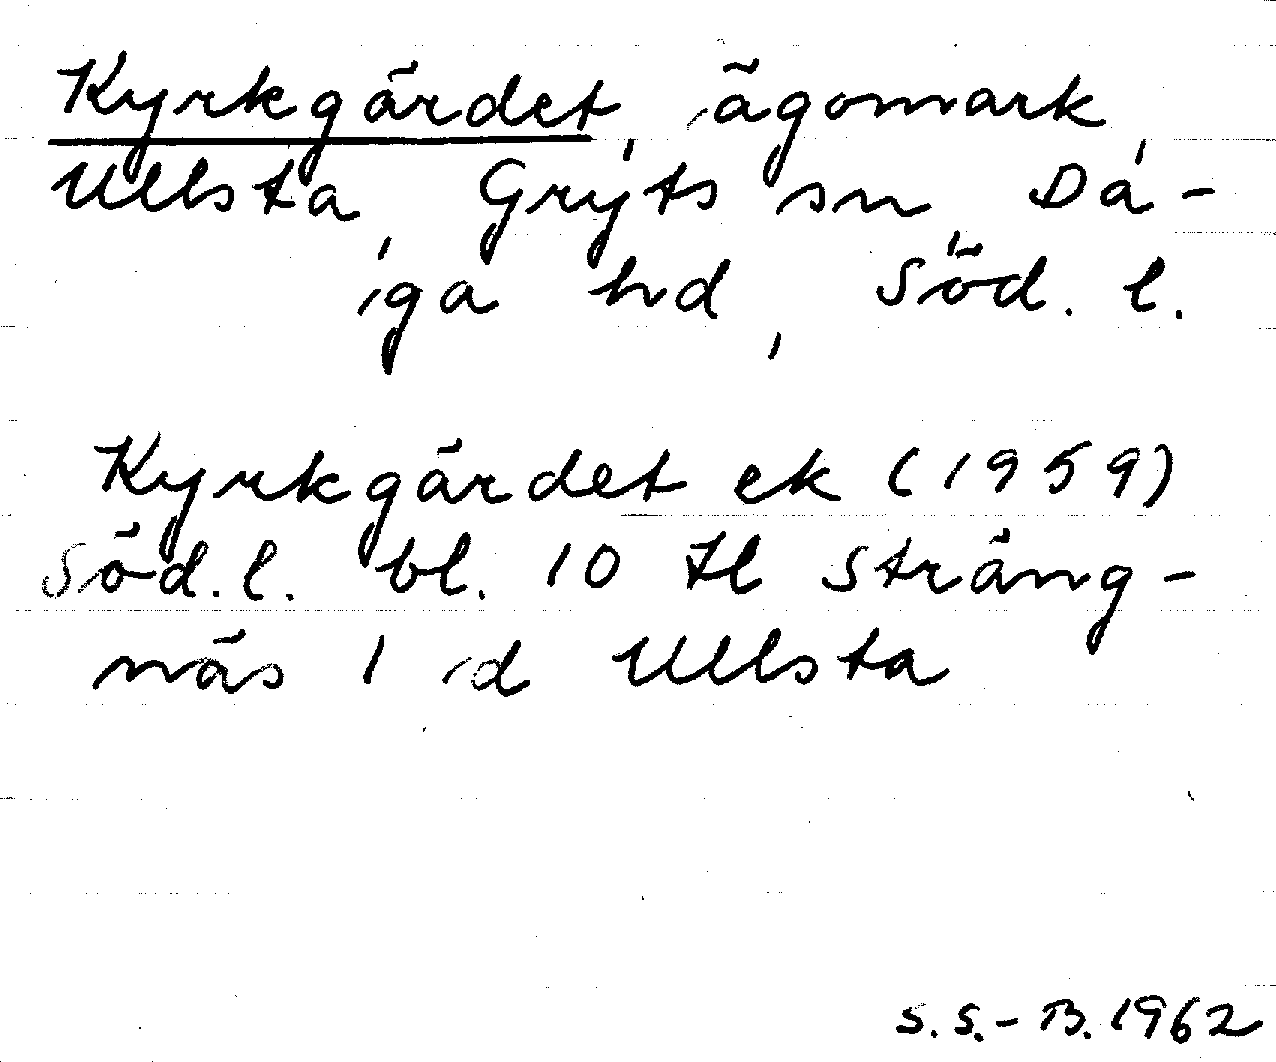 Kyrkgärdet, ägomark,
Ullsta, Gryts sn, Da-
ga hd, Söd. l.
Kyrkgärdet ek (1959)
Söd. l. bl. 10 tl Sträng-
näs 1 d Ullsta
S. S.-B. 1962